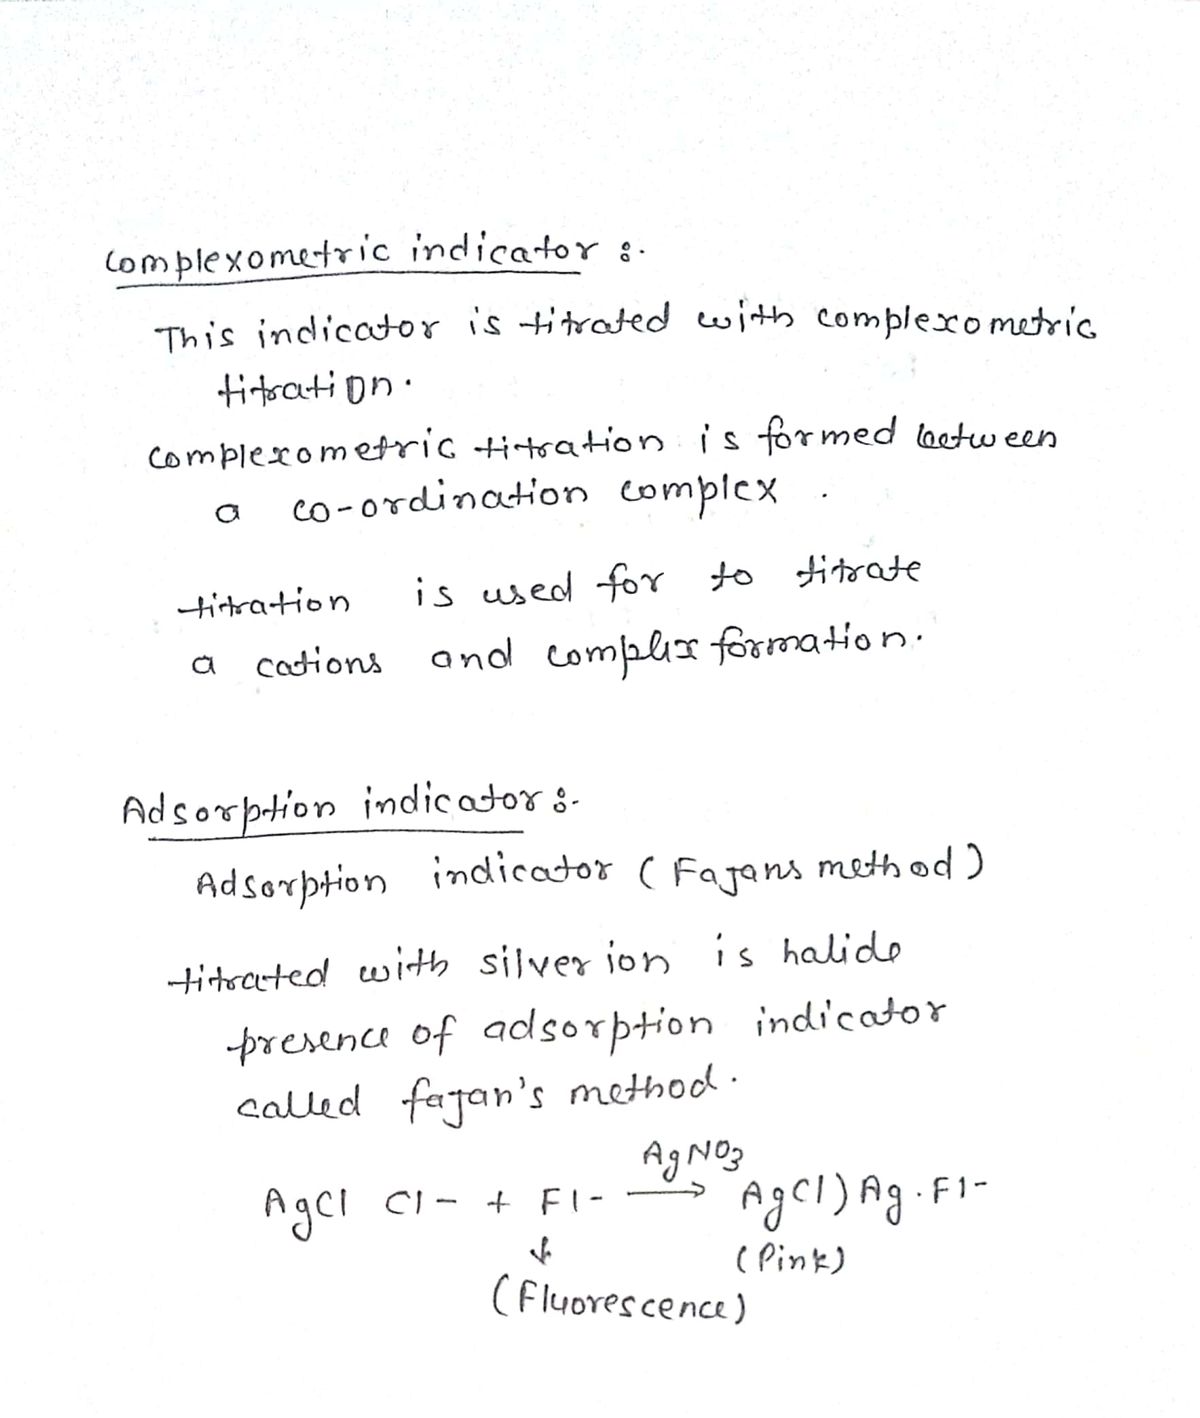 Complexometric indicator :-
This indicator is titrated with complexometric
titration.
Complexometric titration is formed between
a co-ordination complex .
titration is used for to titrate
a cations and complex formation.
Adsorption indicator :-
Adsorption indicator ( Fajans method )
titrated with silver ion is halide
presence of adsorption indicator
called fajan's method.
AgCl Cl- + Fl- AgNO3 → AgCl) Ag . Fl-
↓ (Pink)
(Fluorescence)